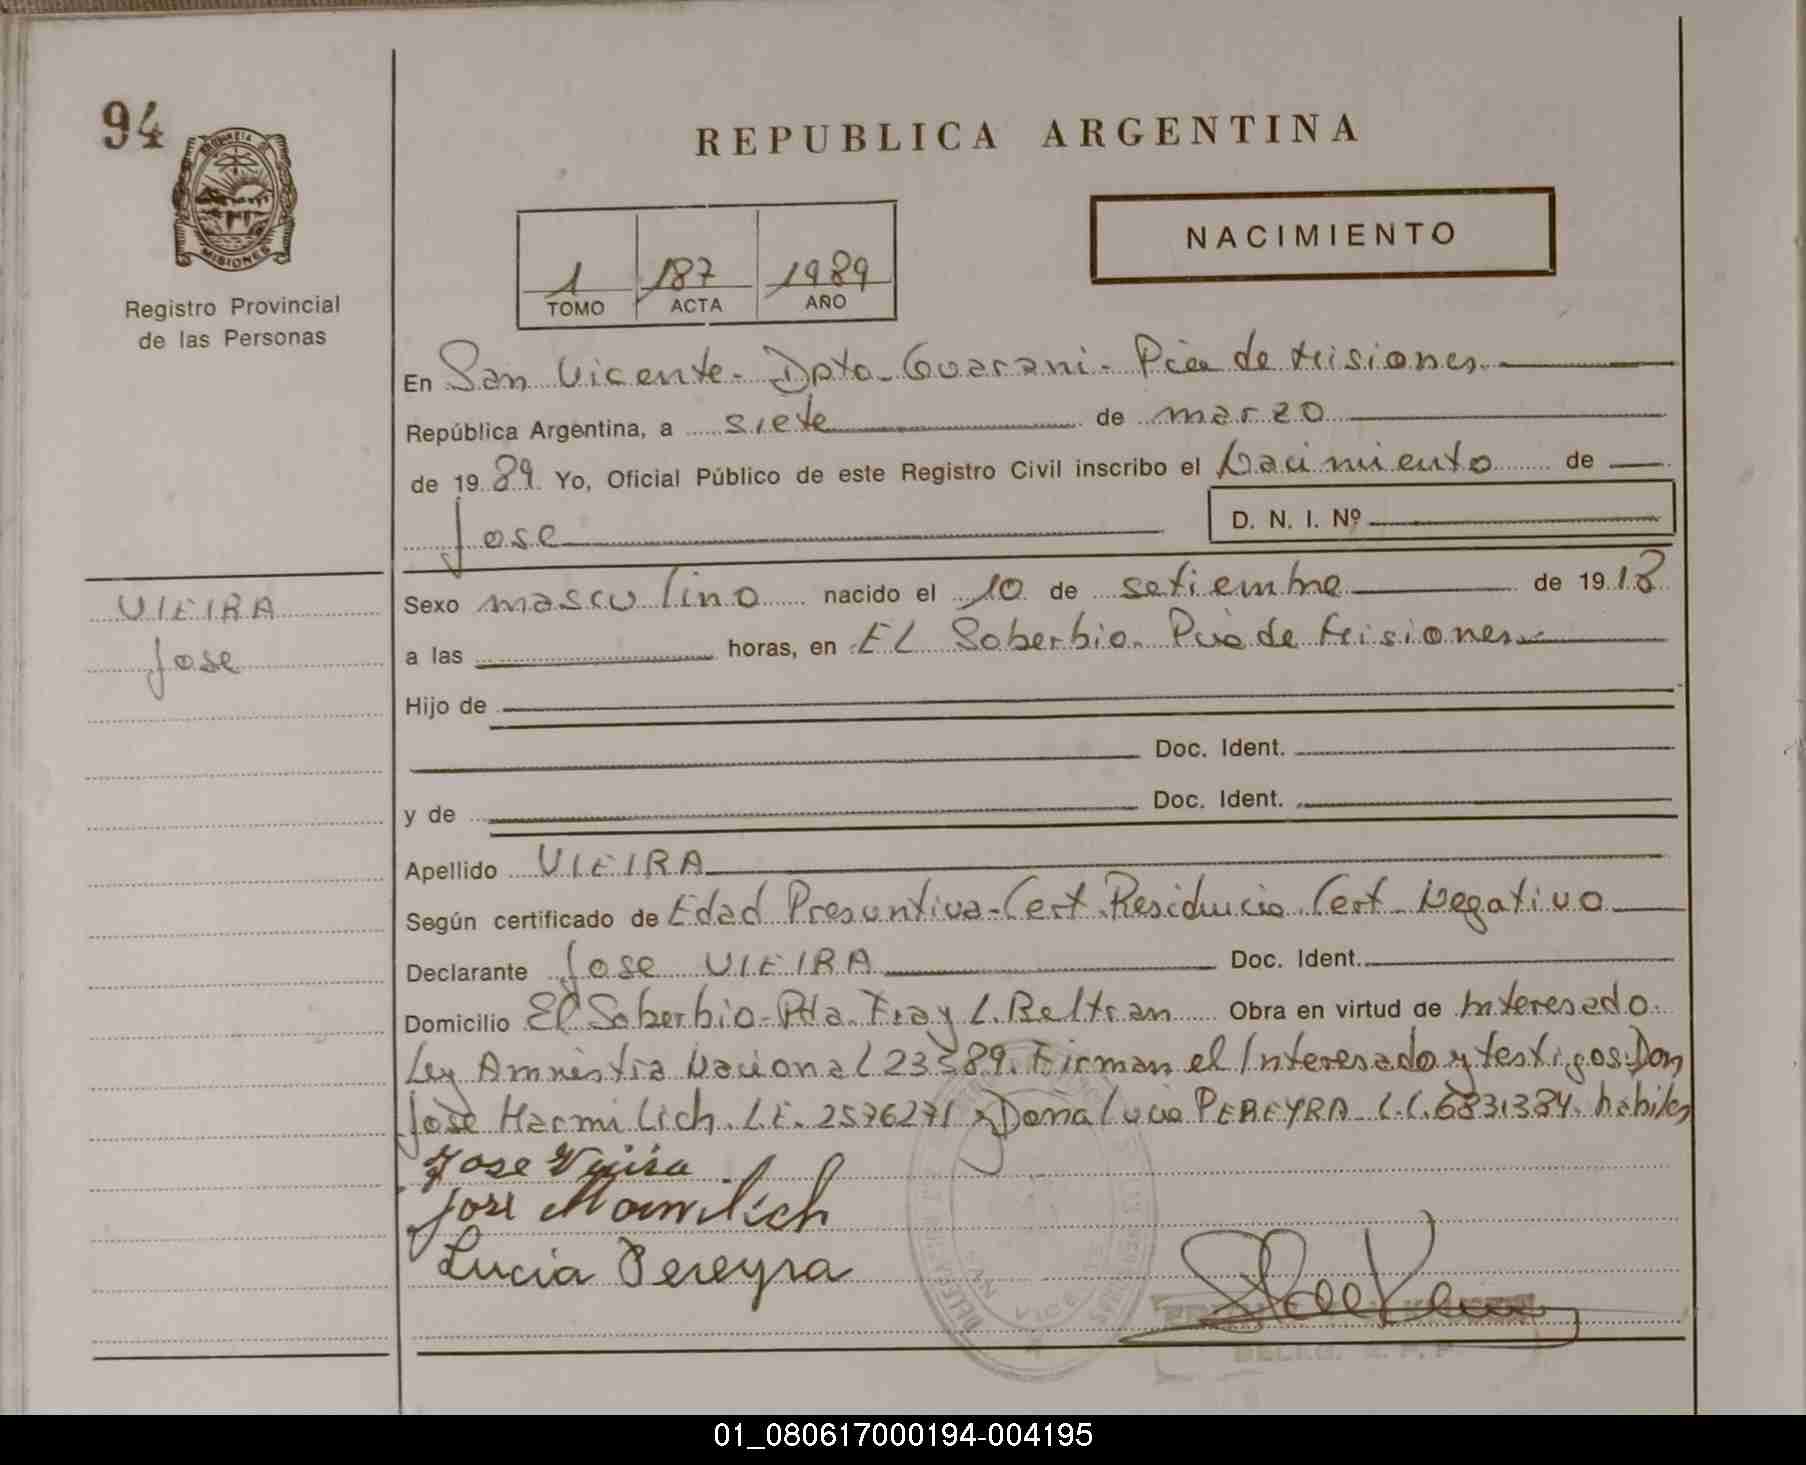 94
PROVINCIA DE
MISIONES
Registro Provincial
de las Personas
REPUBLICA ARGENTINA
NACIMIENTO
1 187 1989
TOMO ACTA AÑO
En San Vicente - Dpto - Guarani - Pcia de Misiones
República Argentina, a siete de marzo
de 1989 Yo, Oficial Público de este Registro Civil inscribo el Nacimiento de
Jose D. N. I. Nº
VIEIRA
Jose
Sexo masculino nacido el 10 de setiembre de 1918
a las horas, en EL Soberbio - Pcia de Misiones
Hijo de
Doc. Ident.
y de Doc. Ident.
Apellido VIEIRA
Según certificado de Edad Presuntiva - Cert. Residencia. Cert. Negativo
Declarante Jose VIEIRA Doc. Ident.
Domicilio El Soberbio - Pta. Fray L. Beltran Obra en virtud de Interesado.
Ley Amnistia Nacional 23389. Firman el Interesado y testigos: Don
José Marmilich. L.E. 2576271 y Doña Lucia PEREYRA L.C. 6831384. habiles
Jose Vieira
José Marmilich
Lucia Pereyra
DELEG. R. P. P.
01_080617000194-004195